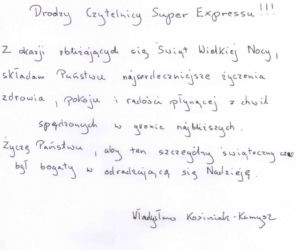 Drodzy Czytelnicy Super Expressu!!!
Z okazji zbliżających się Świąt Wielkiej Nocy,
składam Państwu najserdeczniejsze życzenia
zdrowia, pokoju i radości płynącej z chwil
spędzonych w gronie najbliższych.
Życzę Państwu, aby ten szczególny świąteczny czas
był bogaty w odradzającą się Nadzieję.
Władysław Kosiniak-Kamysz